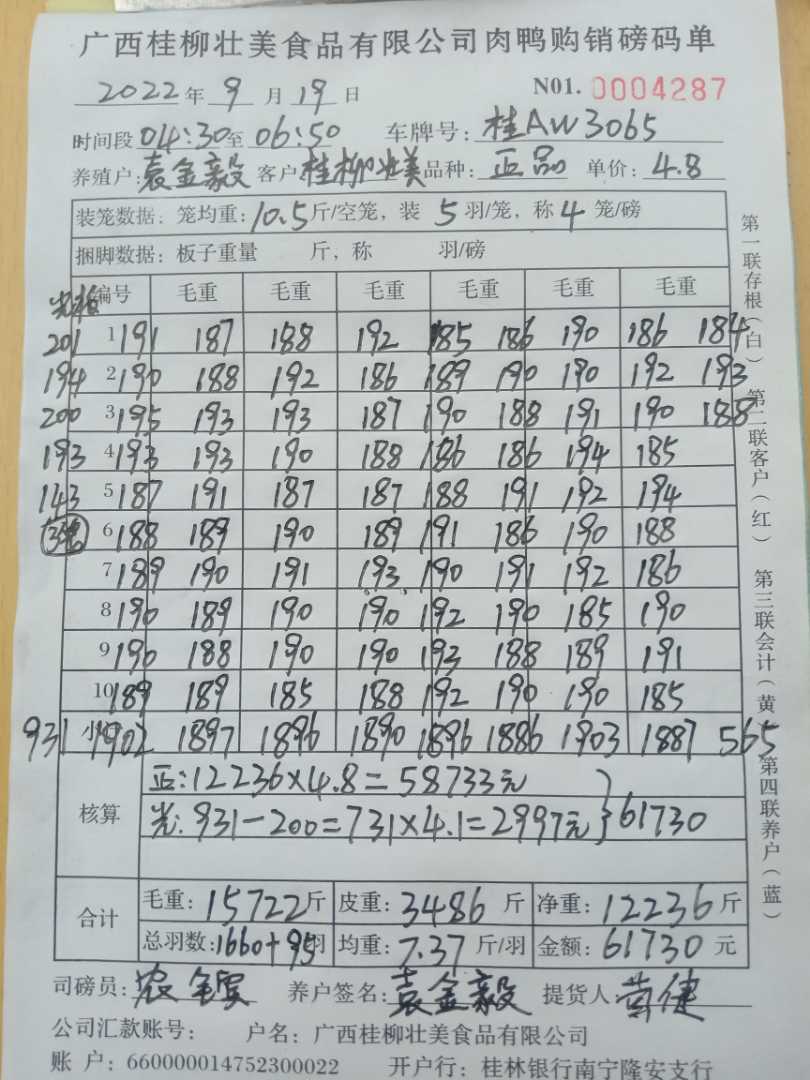 广西桂柳壮美食品有限公司肉鸭购销磅码单
2022年 9 月 19 日 N01. 0004287
时间段 04:30至 06:50 车牌号: 桂AW3065
养殖户: 袁金毅 客户: 桂柳壮美 品种: 正品 单价: 4.8
装笼数据: 笼均重: 10.5斤/空笼, 装 5 羽/笼, 称 4 笼/磅
捆脚数据: 板子重量 斤, 称 羽/磅
编号 毛重 毛重 毛重 毛重 毛重 毛重
201 1 191 187 188 192 185 186 190 186 184
194 2 190 188 192 186 189 190 190 192 193
200 3 195 193 193 187 190 188 191 190 188
193 4 193 193 190 188 186 186 194 185
143 5 187 191 187 187 188 191 192 194
6 188 189 190 189 191 186 190 188
7 189 190 191 193 190 191 192 186
8 190 189 190 190 192 190 185 190
9 190 188 190 190 193 188 189 191
10 189 189 185 188 192 190 190 185
931 小 1902 1897 1896 1890 1896 1886 1903 1887 565
核算
正: 12236×4.8=58733元
光: 931-200=731×4.1=2997元 } 61730
合计
毛重: 15722斤 皮重: 3486 斤 净重: 12236斤
总羽数: 1660+95羽 均重: 7.37 斤/羽 金额: 61730 元
司磅员: 养户签名: 袁金毅 提货人
公司汇款账号: 户名: 广西桂柳壮美食品有限公司
账 户: 660000014752300022 开户行: 桂林银行南宁隆安支行
第一联存根(白) 第二联客户(红) 第三联会计(黄) 第四联养户(蓝)